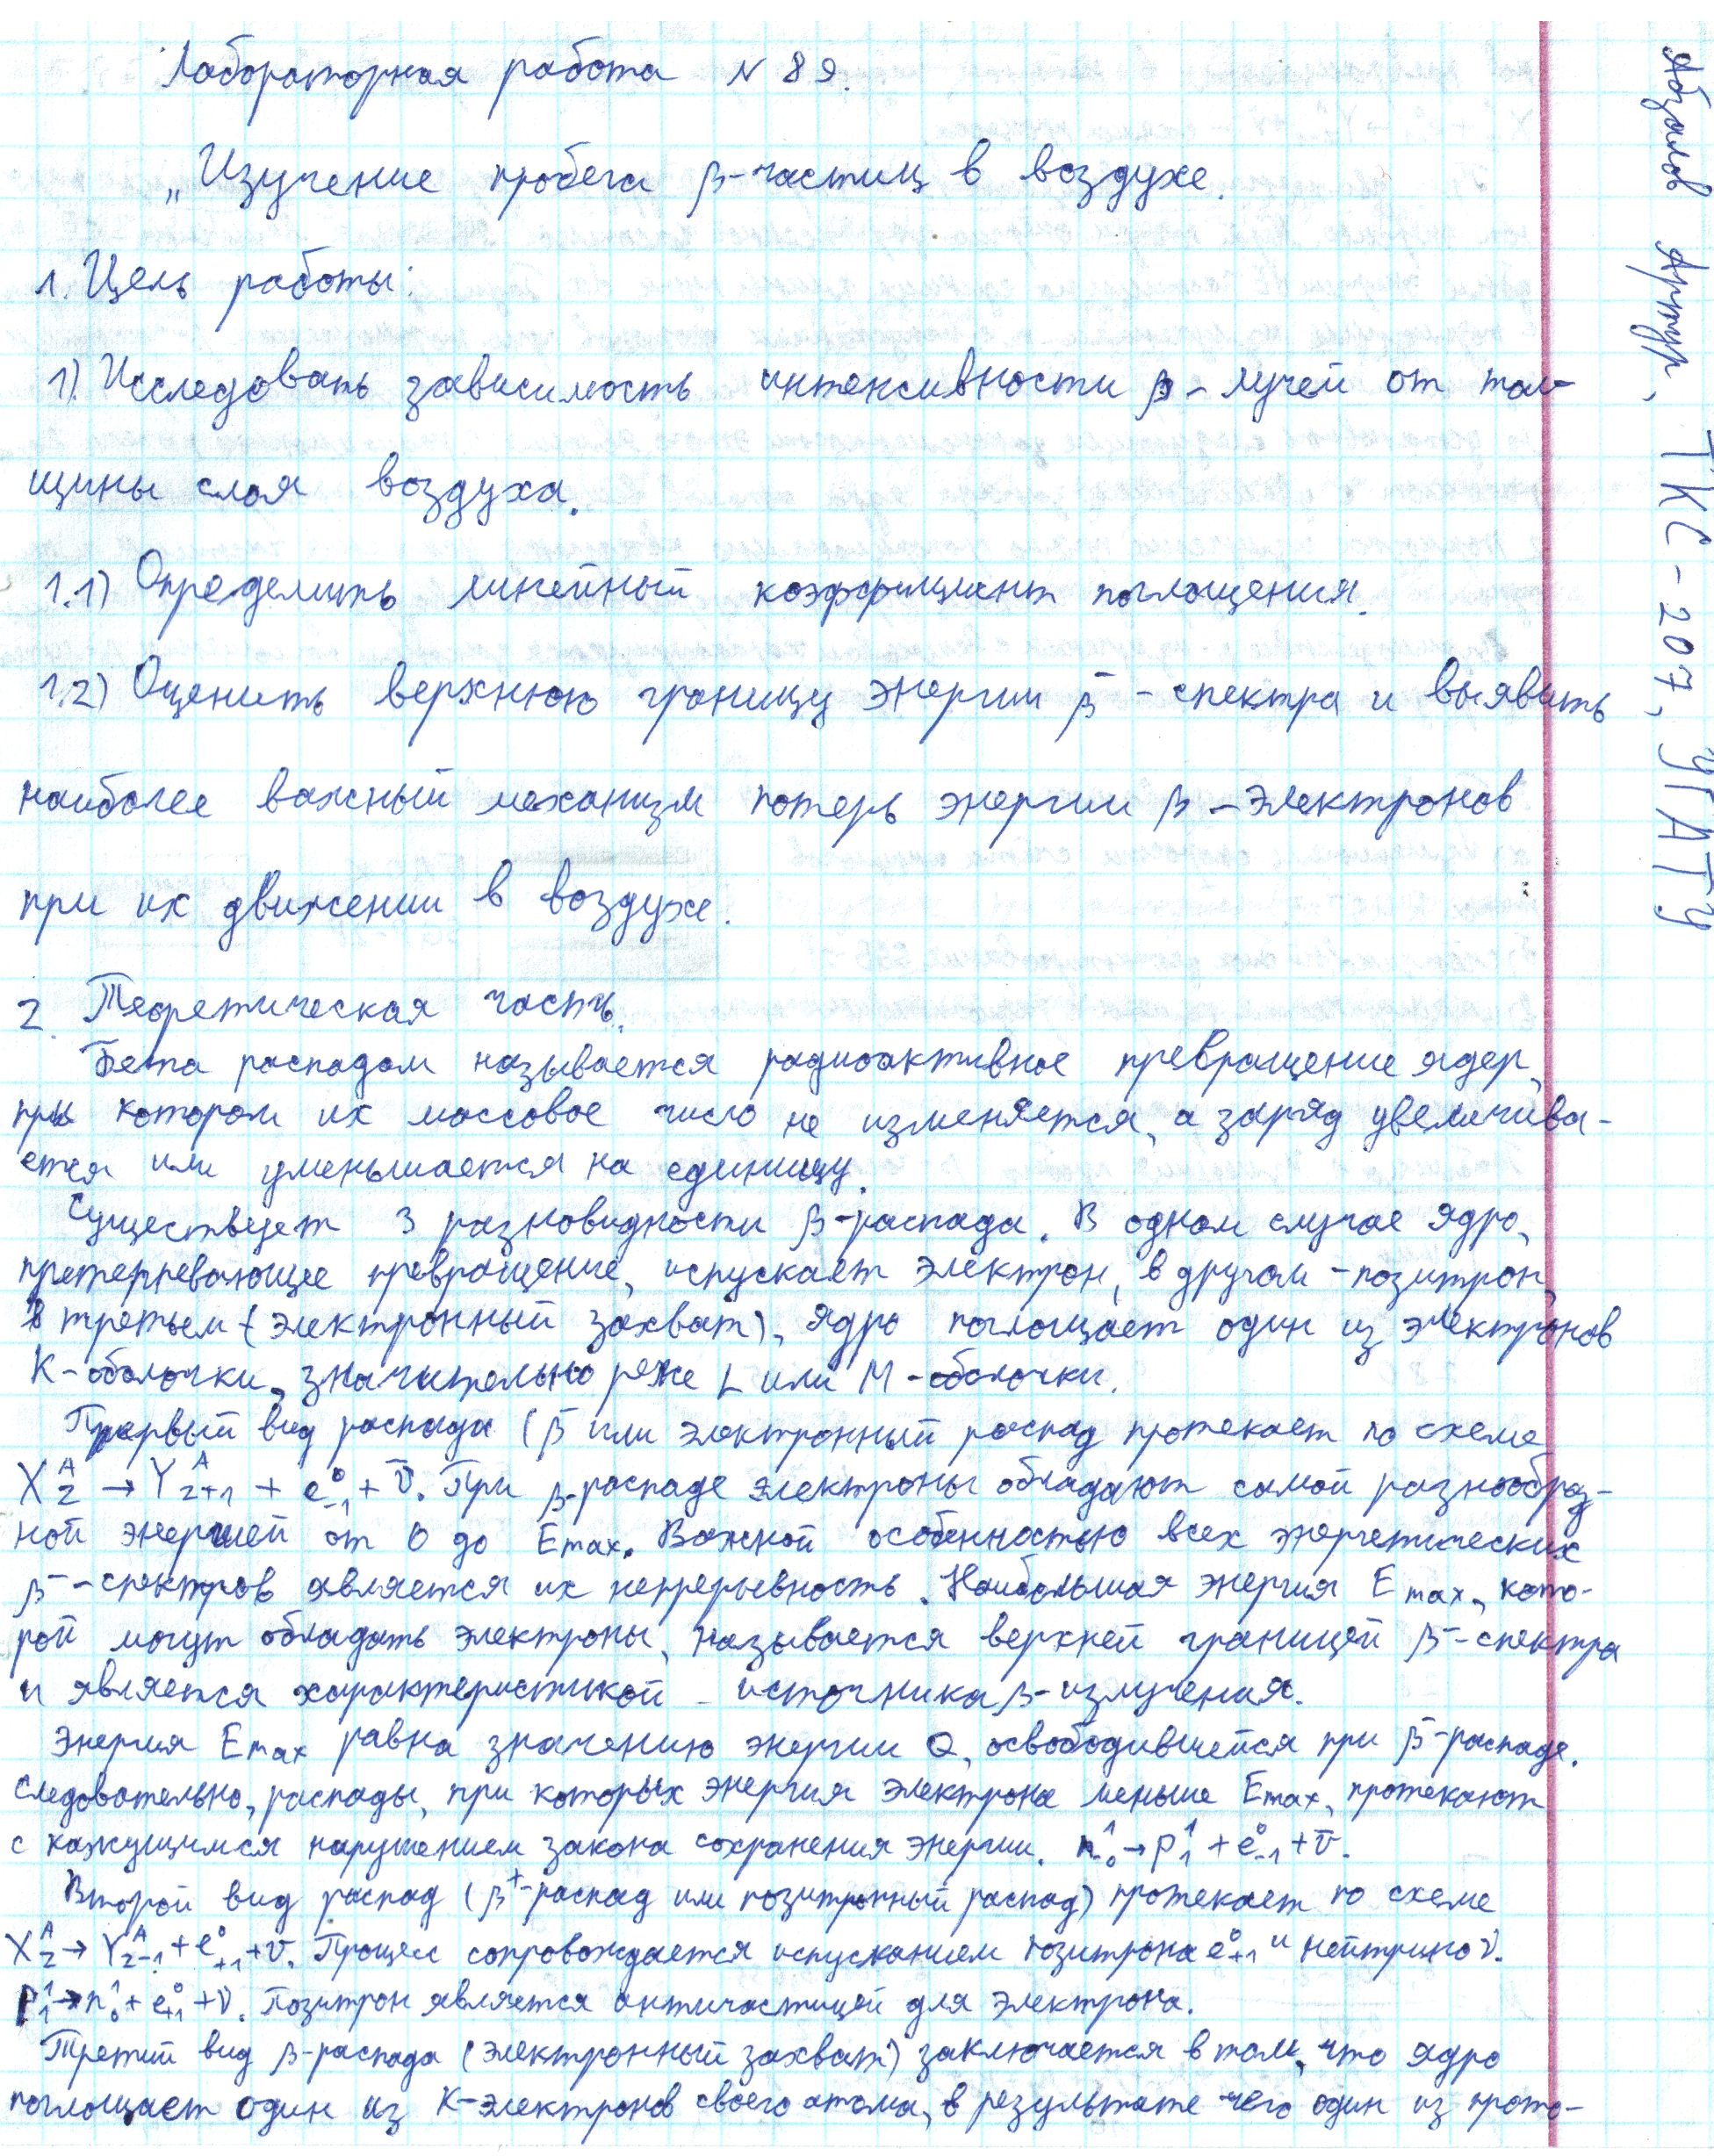 Лабораторная работа N 89.
„Изучение пробега β-частиц в воздухе.
1. Цель работы:
1). Исследовать зависимость интенсивности β-лучей от тол-
щины слоя воздуха.
1.1) Определить линейный коэффициент поглощения.
1.2) Оценить верхнюю границу энергии β⁻-спектра и выявить
наиболее важный механизм потерь энергии β-электронов
при их движении в воздухе.
2. Теоретическая часть.
Бета распадом называется радиоактивное превращение ядер,
при котором их массовое число не изменяется, а заряд увеличива-
ется или уменьшается на единицу.
Существует 3 разновидности β-распада. В одном случае ядро,
претерпевающее превращение, испускает электрон, в другом - позитрон,
в третьем (электронный захват), ядро поглощает один из электронов
K-оболочки, значительно реже L или M-оболочки.
Первый вид распада (β⁻ или электронный распад протекает по схеме
X_Z^A → Y_{Z+1}^A + e_{-1}^0 + ν̅. При β-распаде электроны обладают самой разнообраз-
ной энергией от 0 до Emax. Важной особенностью всех энергетических
β⁻-спектров является их непрерывность. Наибольшая энергия Emax, кото-
рой могут обладать электроны, называется верхней границей β⁻-спектра
и является характеристикой источника β-излучения.
Энергия Emax равна значению энергии Q, освободившейся при β⁻-распаде.
Следовательно, распады, при которых энергия электрона меньше Emax, протекают
с кажущимся нарушением закона сохранения энергии. n_0^1 → p_1^1 + e_{-1}^0 + ν̅.
Второй вид распад (β⁺-распад или позитронный распад) протекает по схеме
X_Z^A → Y_{Z-1}^A + e_{+1}^0 + ν. Процесс сопровождается испусканием позитрона e_{+1}^0 и нейтрино ν.
p_1^1 → n_0^1 + e_{+1}^0 + ν. Позитрон является античастицей для электрона.
Третий вид β-распада (электронный захват) заключается в том, что ядро
поглощает один из K-электронов своего атома, в результате чего один из прото-
Абзалов Артур, ТКС-207, УГАТУ